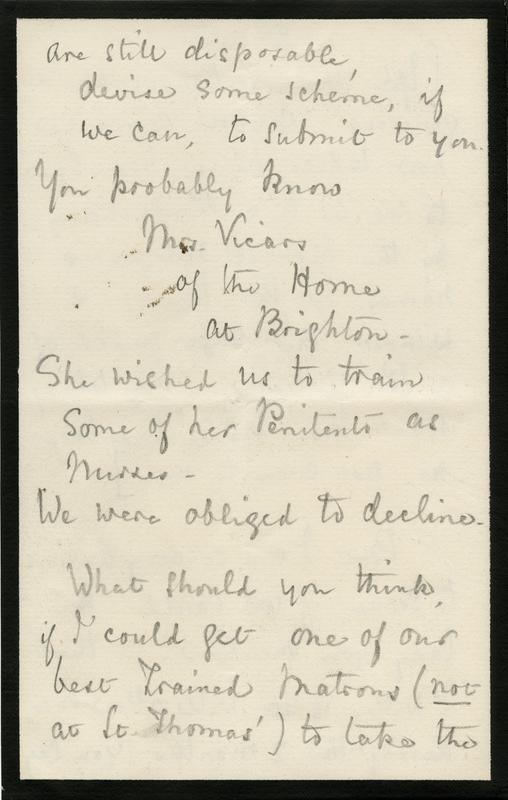 are still disposable,
devise some scheme, if
we can, to submit to you.
You probably know
Mrs. Vicars
of the Home
at Brighton -
She wished us to train
some of her Penitents as
Nurses -
We were obliged to decline.
What should you think,
if I could get one of our
best Trained Matrons (not
at St. Thomas') to take the